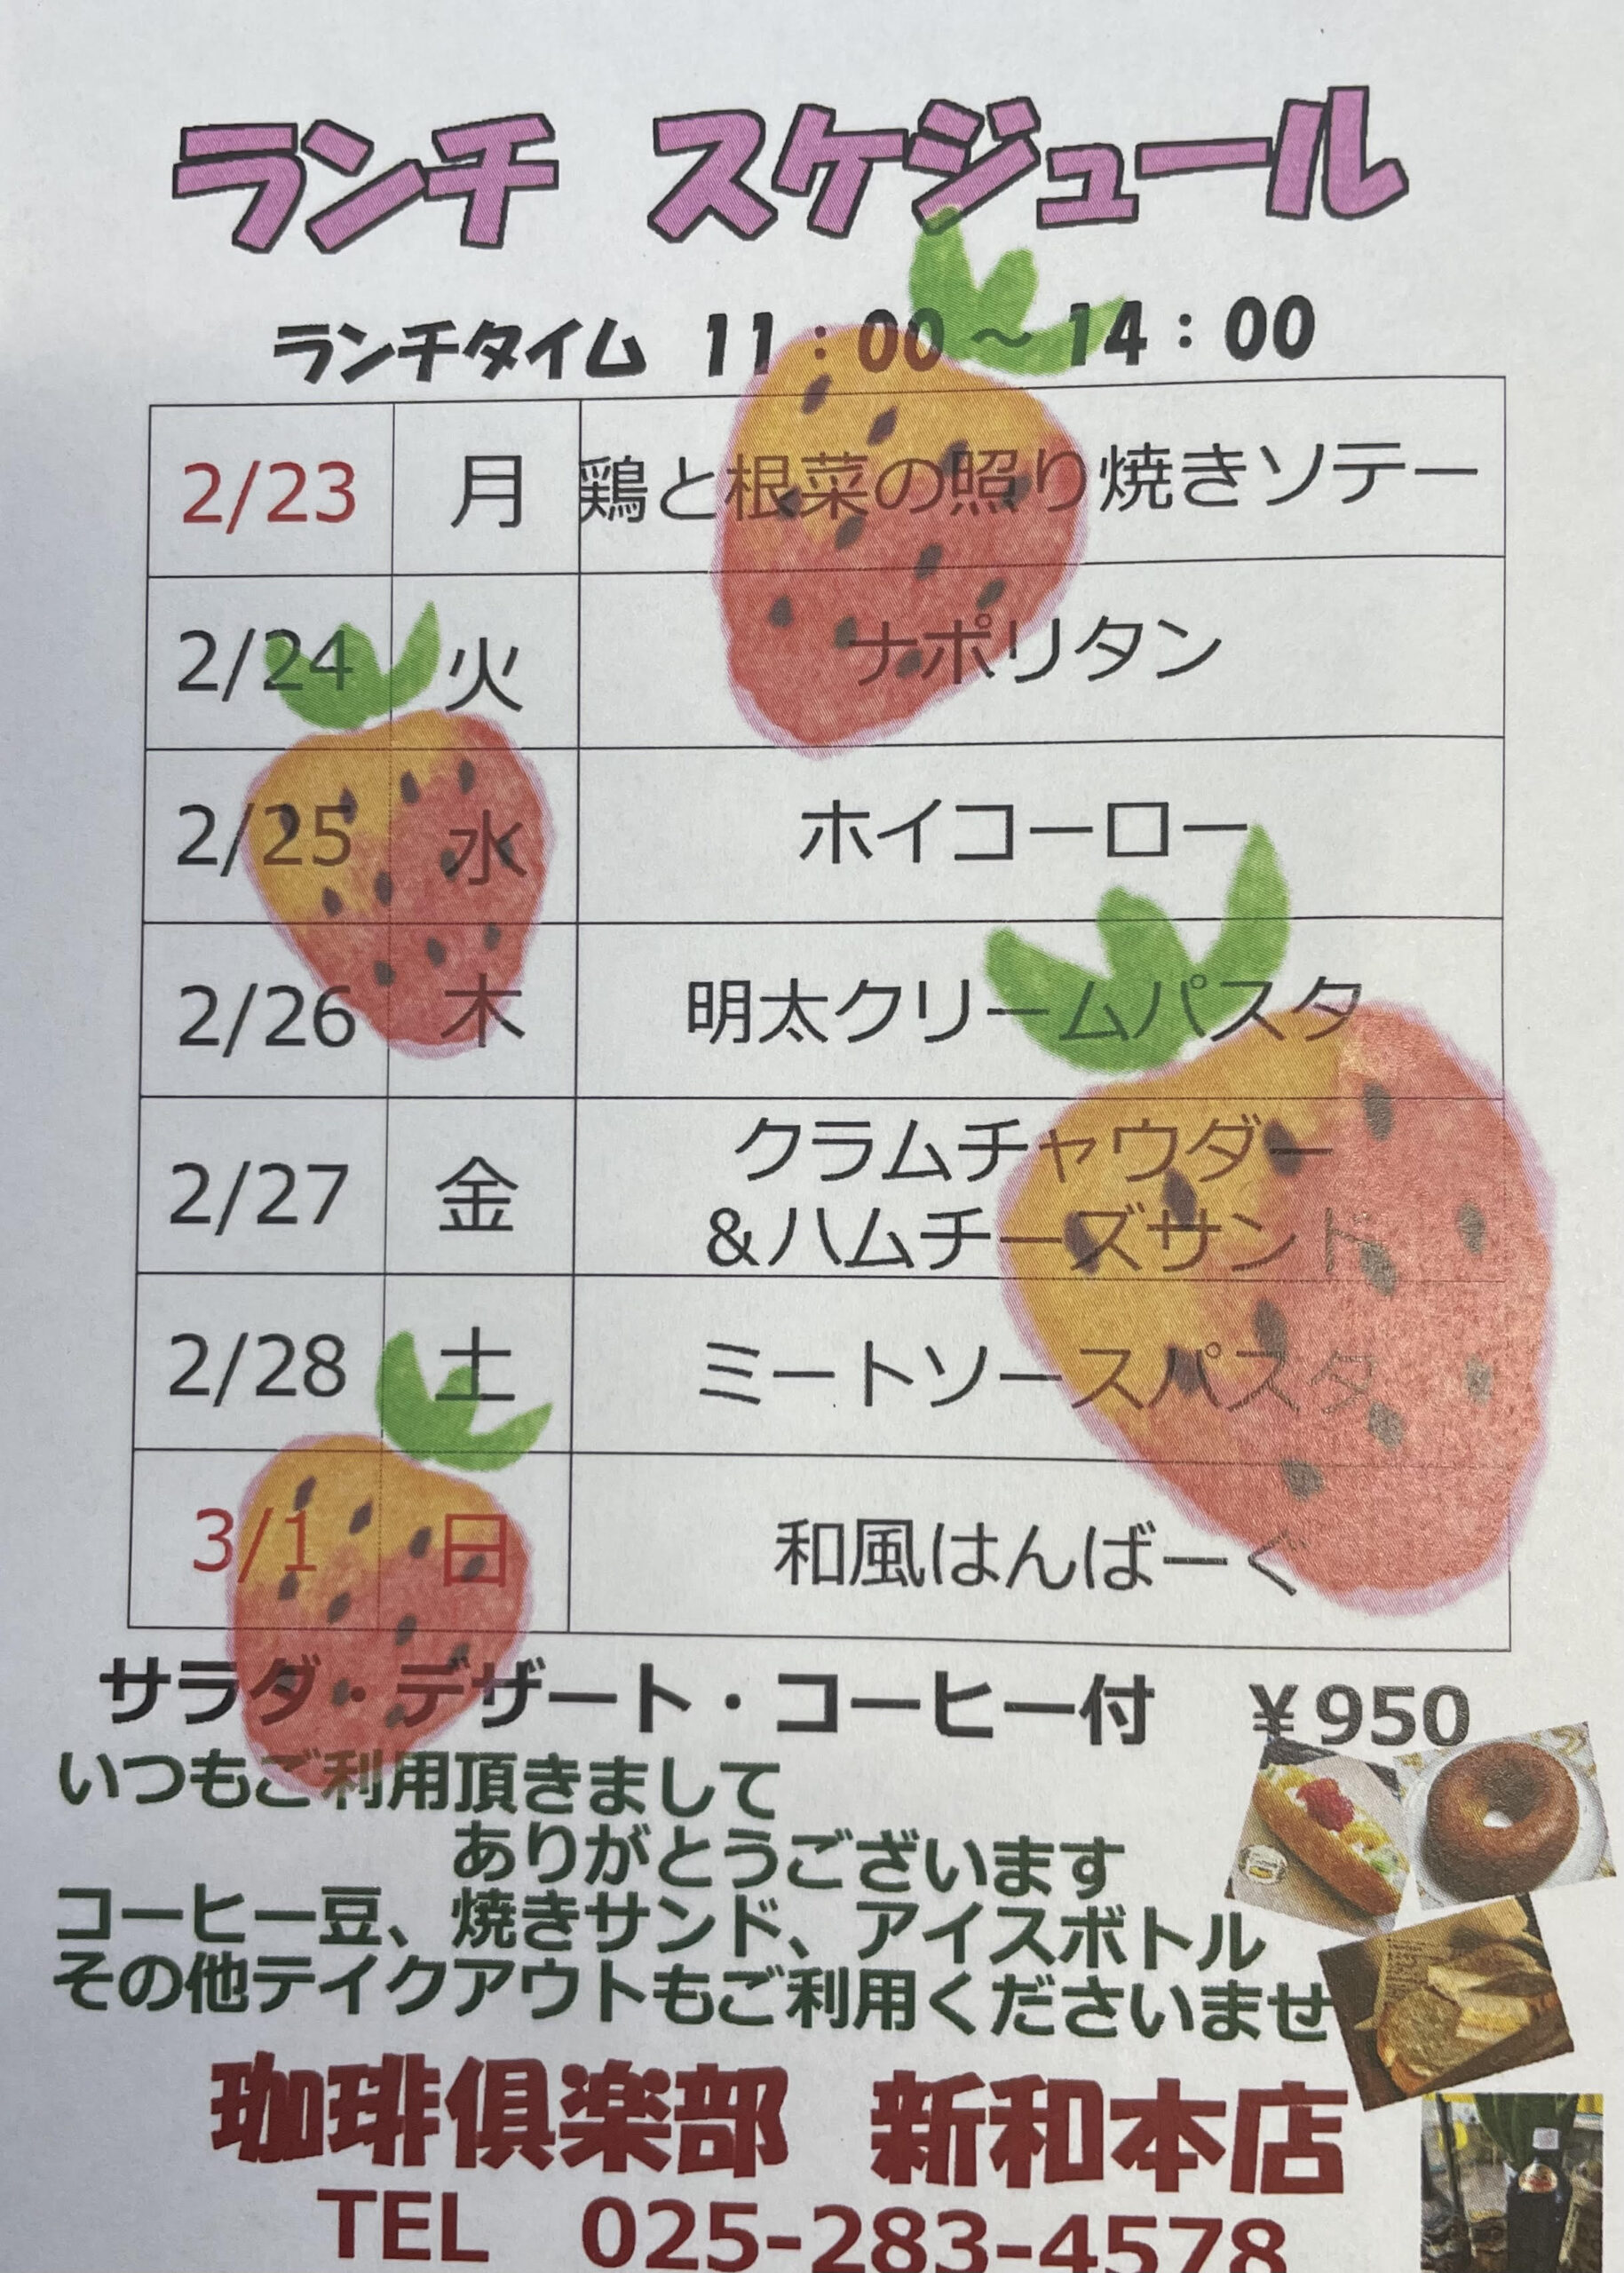 ランチ スケジュール
ランチタイム 11：00～14：00
2/23 月 鶏と根菜の照り焼きソテー
2/24 火 ナポリタン
2/25 水 ホイコーロー
2/26 木 明太クリームパスタ
2/27 金 クラムチャウダー
&ハムチーズサンド
2/28 土 ミートソースパスタ
3/1 日 和風はんばーぐ
サラダ・デザート・コーヒー付 ￥950
いつもご利用頂きまして
ありがとうございます
コーヒー豆、焼きサンド、アイスボトル
その他テイクアウトもご利用くださいませ
珈琲倶楽部 新和本店
TEL 025-283-4578